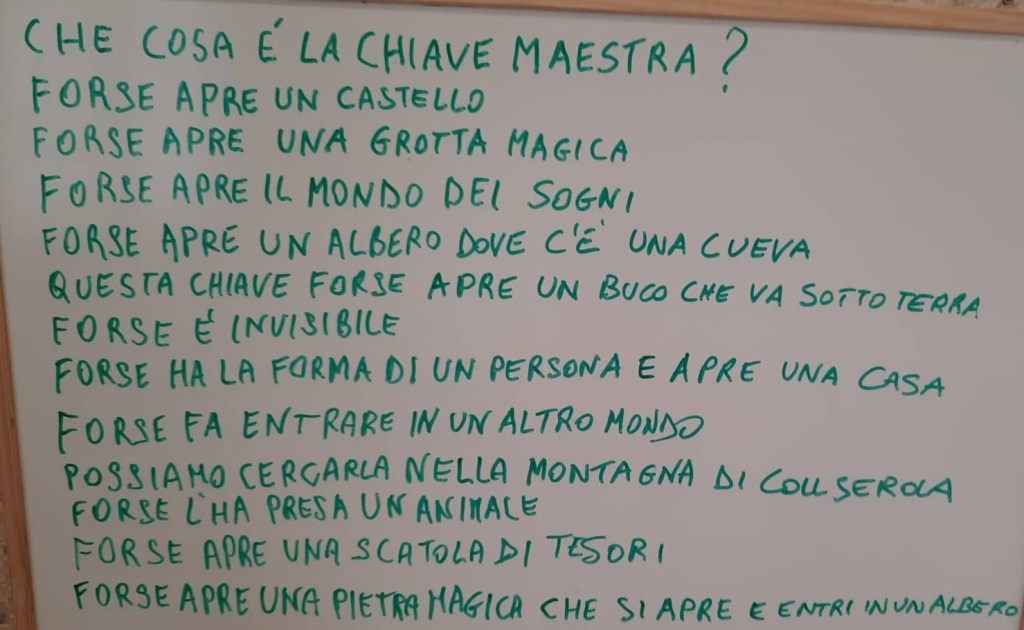 CHE COSA É LA CHIAVE MAESTRA?
FORSE APRE UN CASTELLO
FORSE APRE UNA GROTTA MAGICA
FORSE APRE IL MONDO DEI SOGNI
FORSE APRE UN ALBERO DOVE C'È UNA CUEVA
QUESTA CHIAVE FORSE APRE UN BUCO CHE VA SOTTO TERRA
FORSE É INVISIBILE
FORSE HA LA FORMA DI UN PERSONA E APRE UNA CASA
FORSE FA ENTRARE IN UN ALTRO MONDO
POSSIAMO CERCARLA NELLA MONTAGNA DI COLLSEROLA
FORSE L'HA PRESA UN ANIMALE
FORSE APRE UNA SCATOLA DI TESORI
FORSE APRE UNA PIETRA MAGICA CHE SI APRE E ENTRI IN UN ALBERO